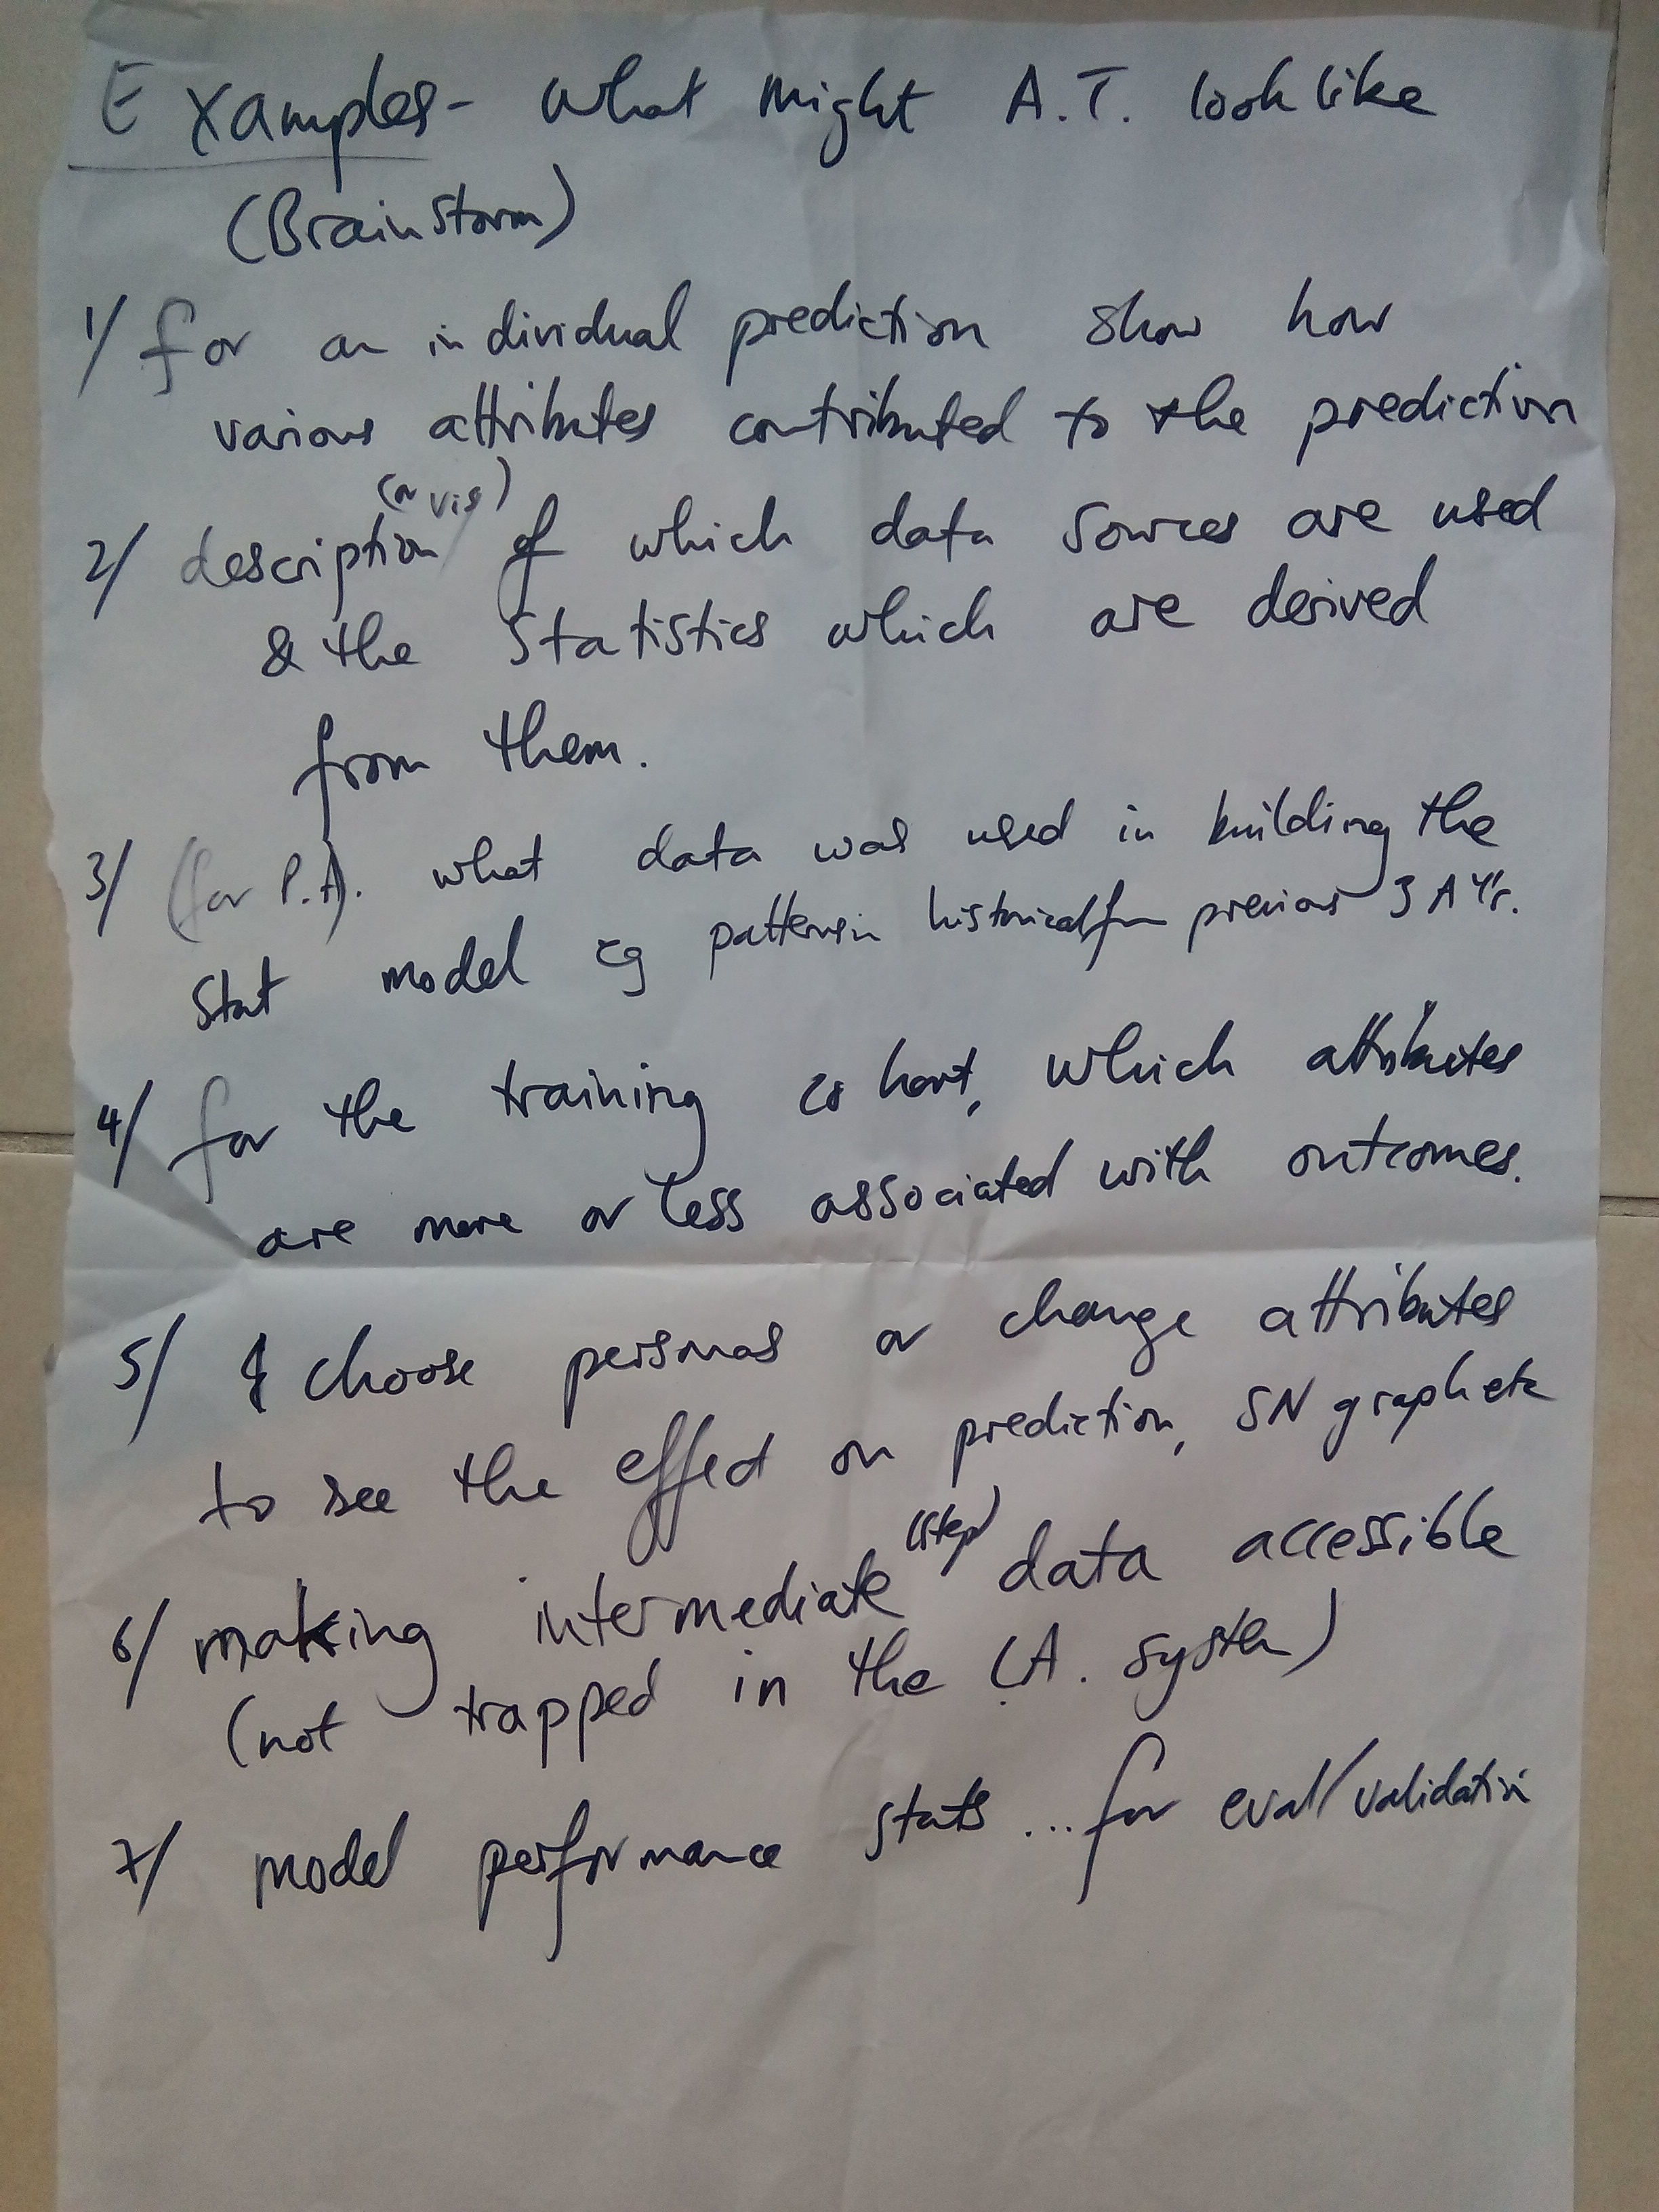 Examples - what might A.T. look like
(Brainstorm)
1/ for an individual prediction show how
various attributes contributed to the prediction
(or vis)
2/ description of which data sources are used
& the statistics which are derived
from them.
3/ (for P.A). what data was used in building the
Stat model eg patterns in historical from previous 3 AYrs.
4/ for the training cohort, which attributes
are more or less associated with outcomes.
5/ choose personas or change attributes
to see the effect on prediction, SN graph etc
(step)
6/ making intermediate data accessible
(not trapped in the L.A. system)
7/ model performance stats ... for eval/validation